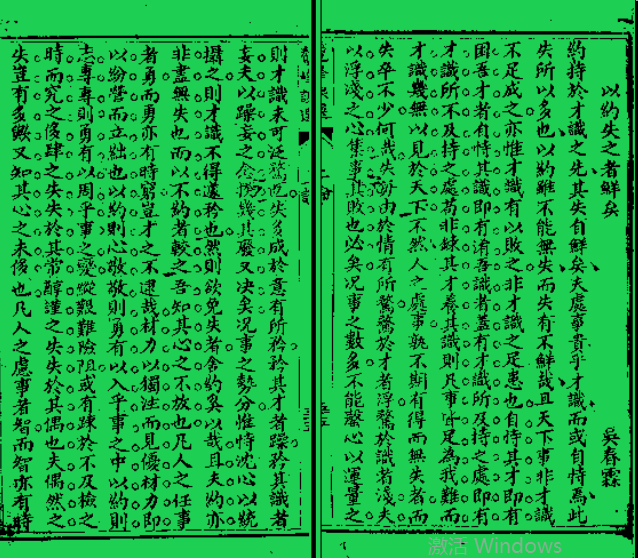 以約失之者鮮矣
吳春霖
約持於才識之先其失自鮮矣夫處事貴乎才識而或自恃為此
失所以多也以約雖不能無失而失有不鮮哉且天下事非才識
不足成之亦惟才識有以敗之非才識之足患也自恃其才即有
囿吾才者自恃其識即有淆吾識者蓋有才識所及持之處即有
才識所不及持之處苟非錬其才養其識則凡事皆足為我難而
才識幾無以見於天下不然人之處事孰不期有得而無失者而
失卒不少何哉失每由於情有所騖騖於才者浮騖於識者淺夫
以浮淺之心集事其敗也必矣况事之數多不能罄心以運量之
則才識未可泛騖也失多成於意有所矜矜其才者躁矜其識者
妄夫以躁妄之念撓幾其廢又决矣况事之勢分惟恃沈心以統
攝之則才識不得遂矜也然則欲免失者舍約奚以哉且夫約亦
非盡無失也而以不約者較之吾知其心之不放也凡人之任事
者勇而勇亦有時窮豈才之不逮哉材力以獨注而見優材力即
以紛營而立絀也以約則心敬敬則勇有以入乎事之中以約則
志專專則勇有以周乎事之變縱艱難險阻或有踈於不及檢之
時而究之侈肆之失失於其常醇謹之失失於其偶也夫偶然之
失豈有多歟又知其心之未侈也凡人之慮事者智而智亦有時
激活 Windows